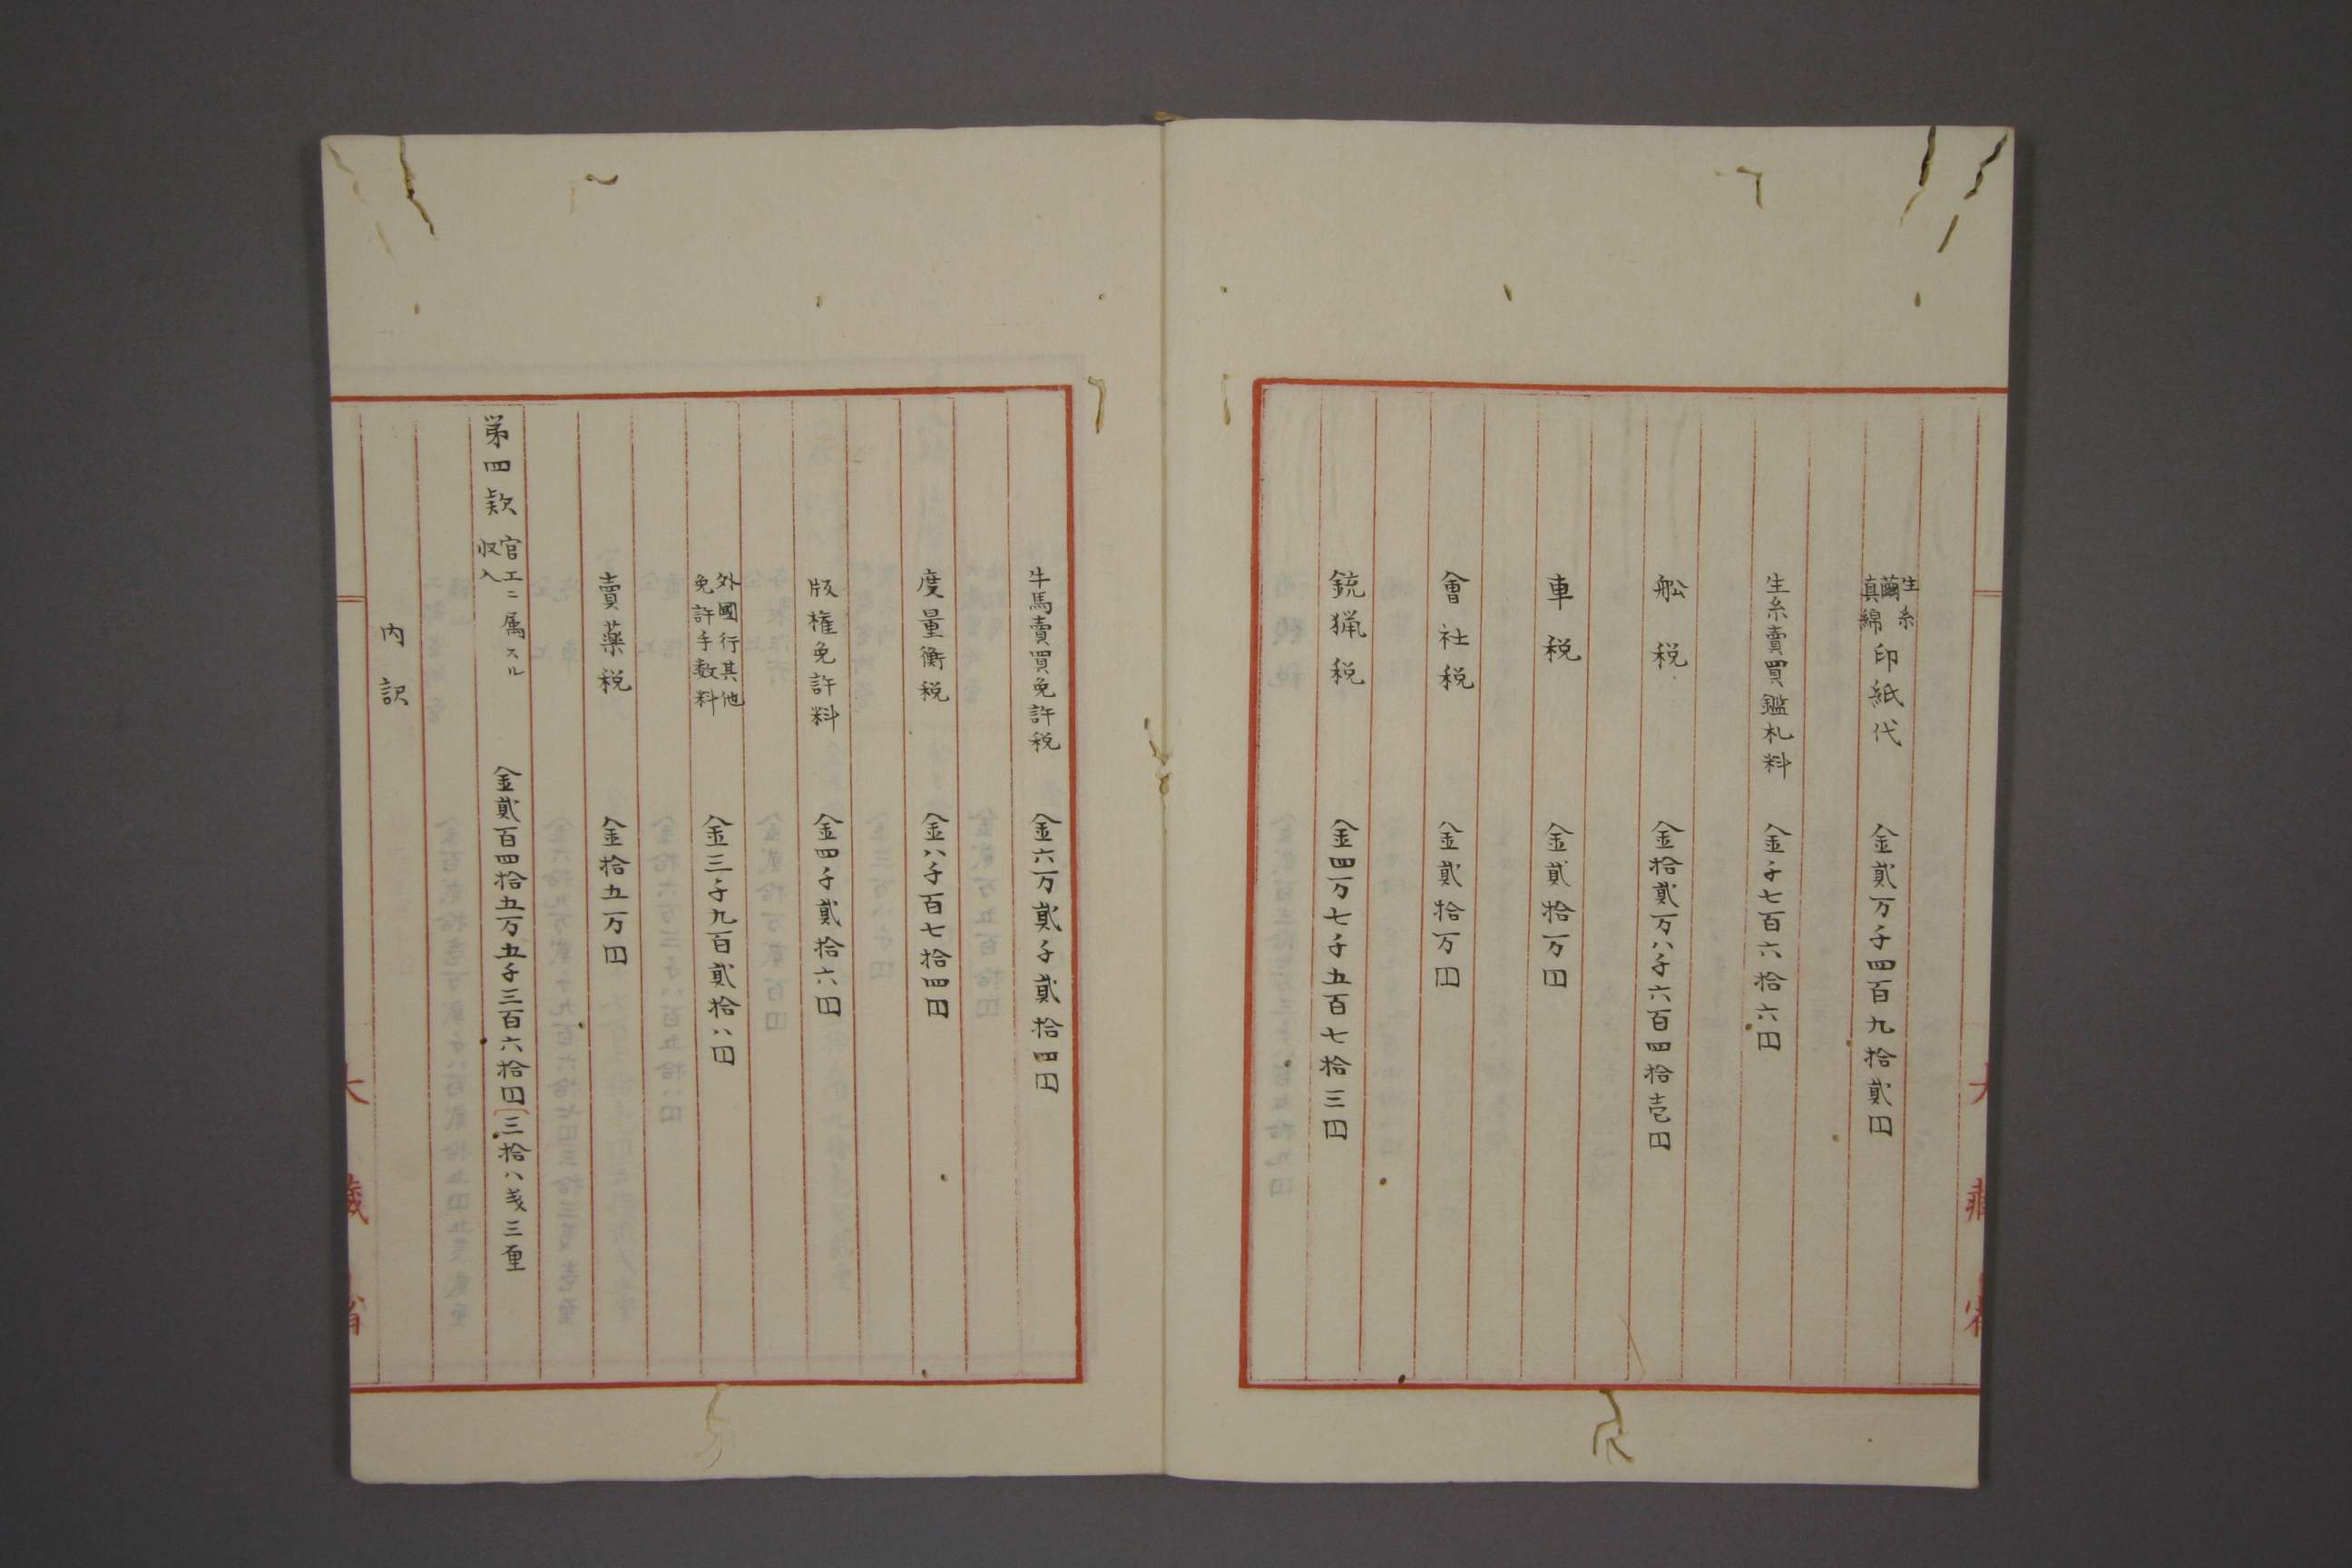 生糸
繭
真綿 印紙代 金貳万千四百九拾貳円
生糸賣買鑑札料 金千七百六拾六円
舩税 金拾貳万八千六百四拾壱円
車税 金貳拾万円
會社税 金貳拾万円
銃猟税 金四万七千五百七拾三円
牛馬賣買免許税 金六万貳千貳拾四円
度量衡税 金八千百七拾四円
版権免許料 金四千貳拾六円
外國行其他
免許手数料 金三千九百貳拾八円
賣薬税 金拾五万円
第四款 官工ニ属スル
収入 金貳百四拾五万五千三百六拾円三拾八戋三厘
内訳
大藏省